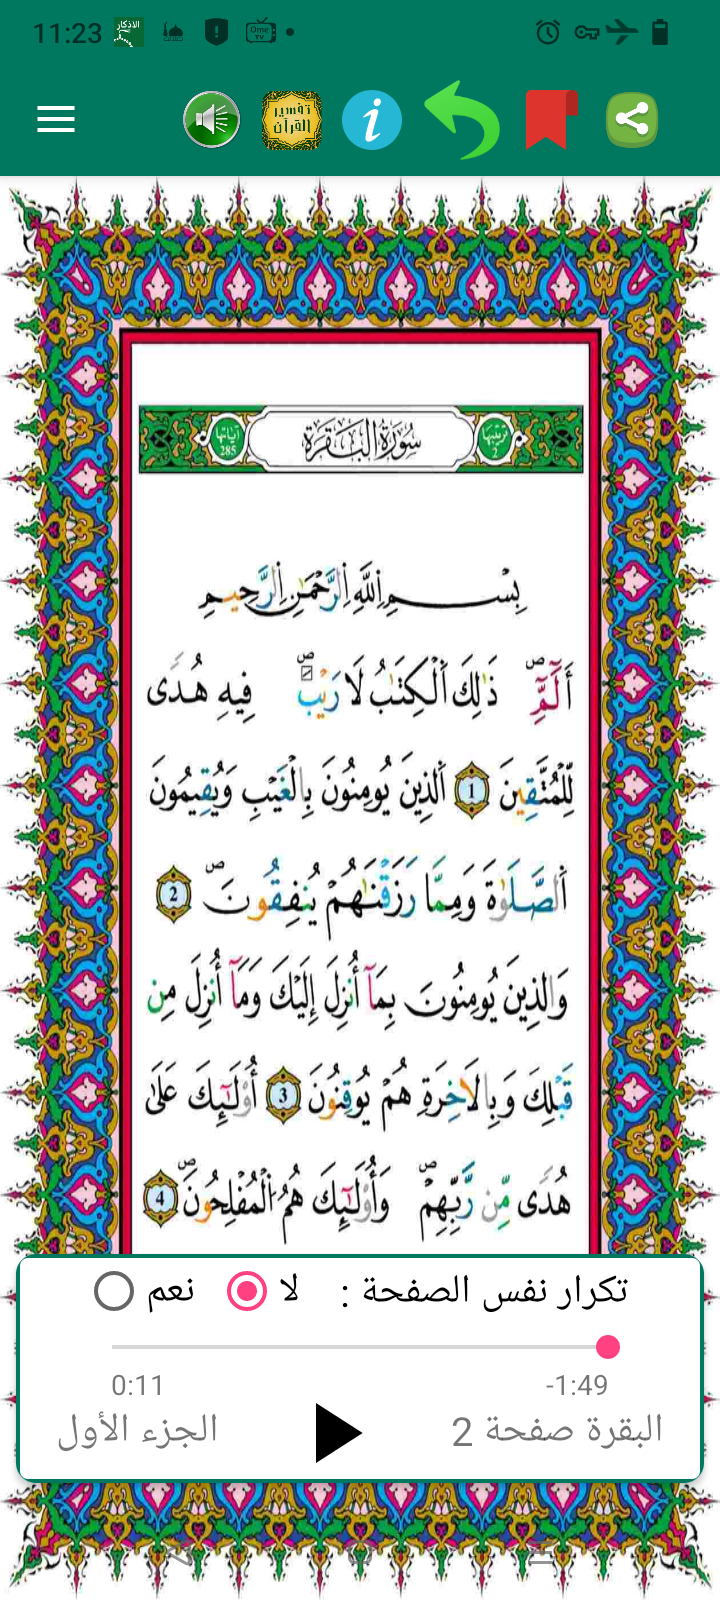 11:23
الاذكار
Ome TV
تفسير القرآن
i
ترتيبها 2 سُورَةُ الْبَقَرَةِ آياتها 285
بِسْمِ اِللَّهِ اِلرَّحْمَٰنِ اِلرَّحِيمِ
أَلَٓمِّٓۖ ذَٰلِكَ اَلْكِتَٰبُ لَا رَيْبَۖ فِيهِ هُدٗى
لِّلْمُتَّقِينَ 1 اَلذِينَ يُومِنُونَ بِالْغَيْبِ وَيُقِيمُونَ
اَلصَّلَوٰةَ وَمِمَّا رَزَقْنَٰهُمْ يُنفِقُونَۖ 2
وَالذِينَ يُومِنُونَ بِمَآ أُنزِلَ إِلَيْكَ وَمَآ أُنزِلَ مِن
قَبْلِكَ وَبِالَاخِرَةِ هُمْ يُوقِنُونَ 3 أُوْلَٰٓئِكَ عَلَىٰ
هُدٗى مِّن رَّبِّهِمْۖ وَأُوْلَٰٓئِكَ هُمُ اُلْمُفْلِحُونَۖ 4
تكرار نفس الصفحة : لا نعم
0:11 -1:49
البقرة صفحة 2 الجزء الأول